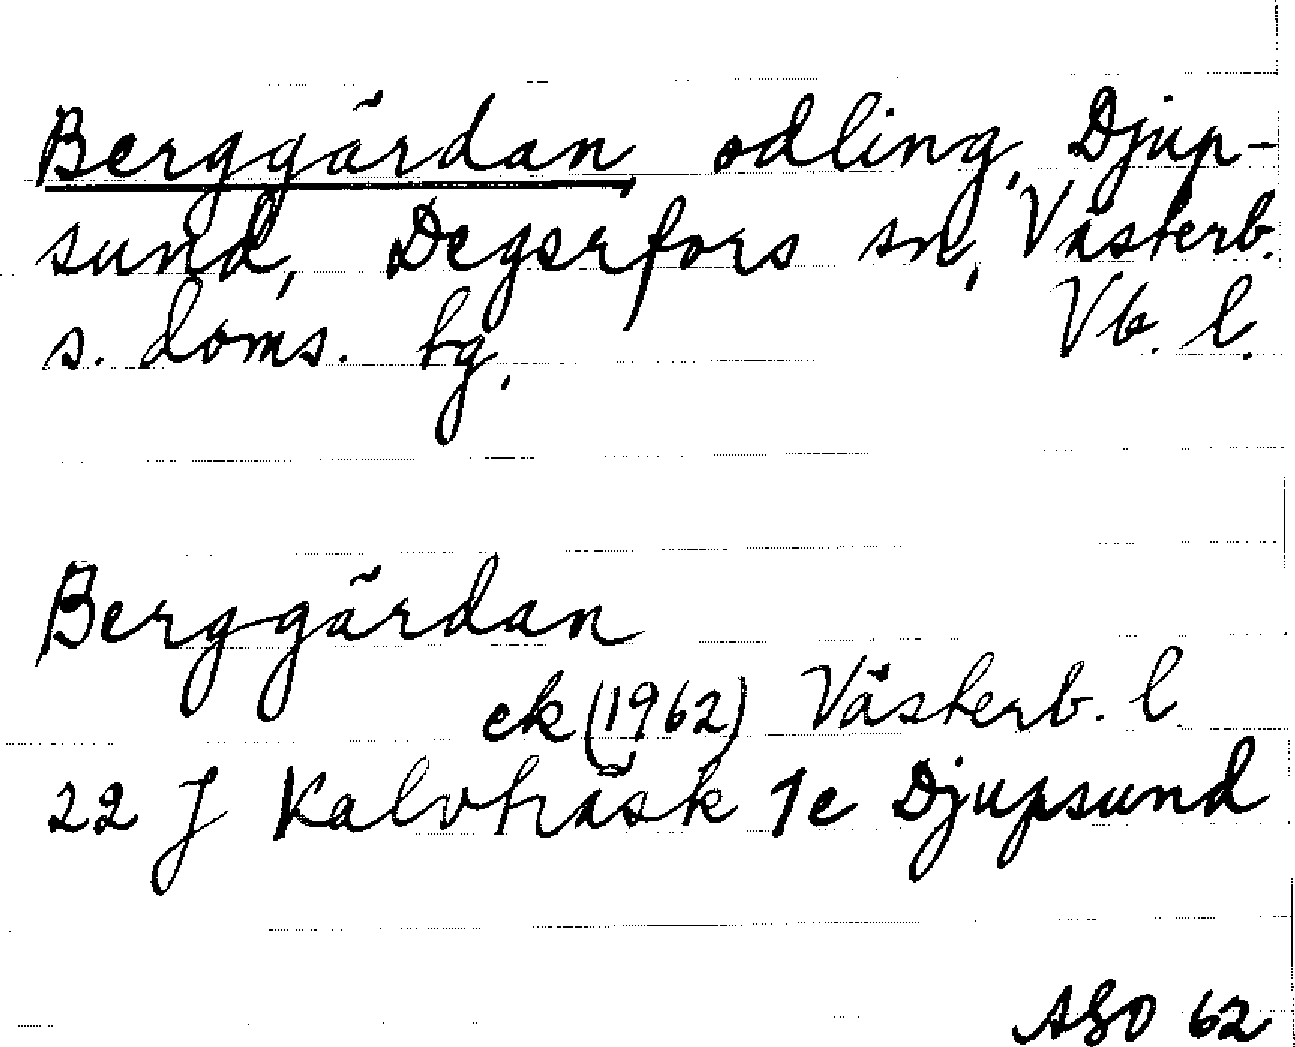 Berggärdan, odling, Djup-
sund, Degerfors sn, Västerb.
s. doms. tg, Vb. l.
Berggärdan
ek (1962) Västerb. l
22 J Kalvträsk 1e Djupsund
ASO 62